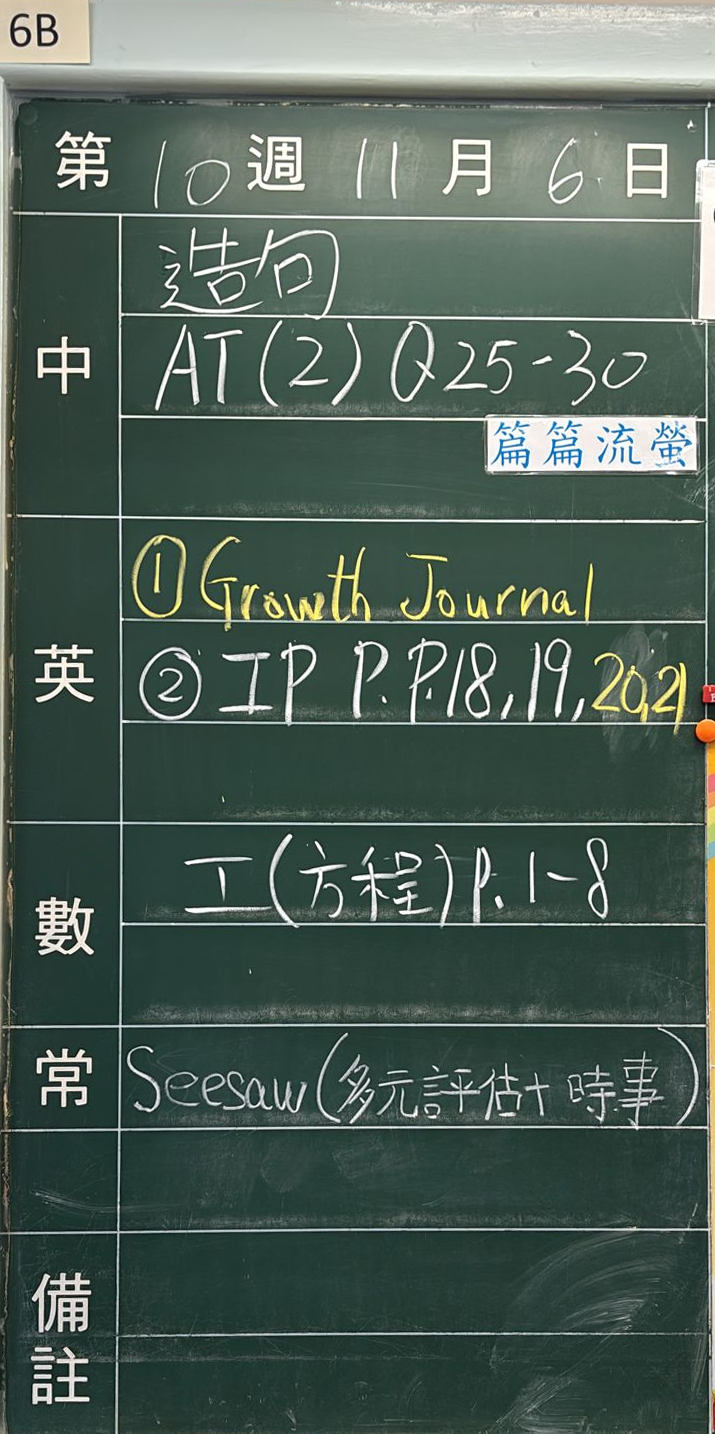 6B
第 10 週 11 月 6 日
中
造句
AT(2) Q25-30
篇篇流螢
英
① Growth Journal
② IP P.P.18,19,20,21
數
工(方程)p.1-8
常
Seesaw(多元評估+時事)
備註